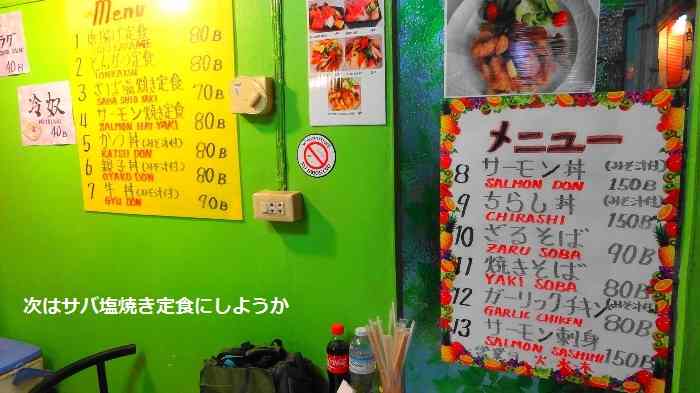 Menu
1 唐揚げ定食 80B
2 とんかつ定食 80B
TONKATSU
3 さば塩焼き定食 70B
SABA SHIO YAKI
4 サーモン焼き定食 80B
SALMON YAKI
5 かつ丼(みそ汁付) 80B
KATSU DON
6 親子丼(みそ汁付) 80B
OYAKO DON
7 牛丼(みそ汁付) 90B
GYU DON
40B
冷奴
40B
メニュー
8 サーモン丼(みそ汁付)
SALMON DON 150B
9 ちらし丼(みそ汁付)
CHIRASHI 150B
10 ざるそば
ZARU SOBA 90B
11 焼きそば
YAKI SOBA 80B
12 ガーリックチキン(みそ汁付)
GARLIC CHIKEN 80B
13 サーモン刺身
SALMON SASHIMI 150B
次はサバ塩焼き定食にしようか